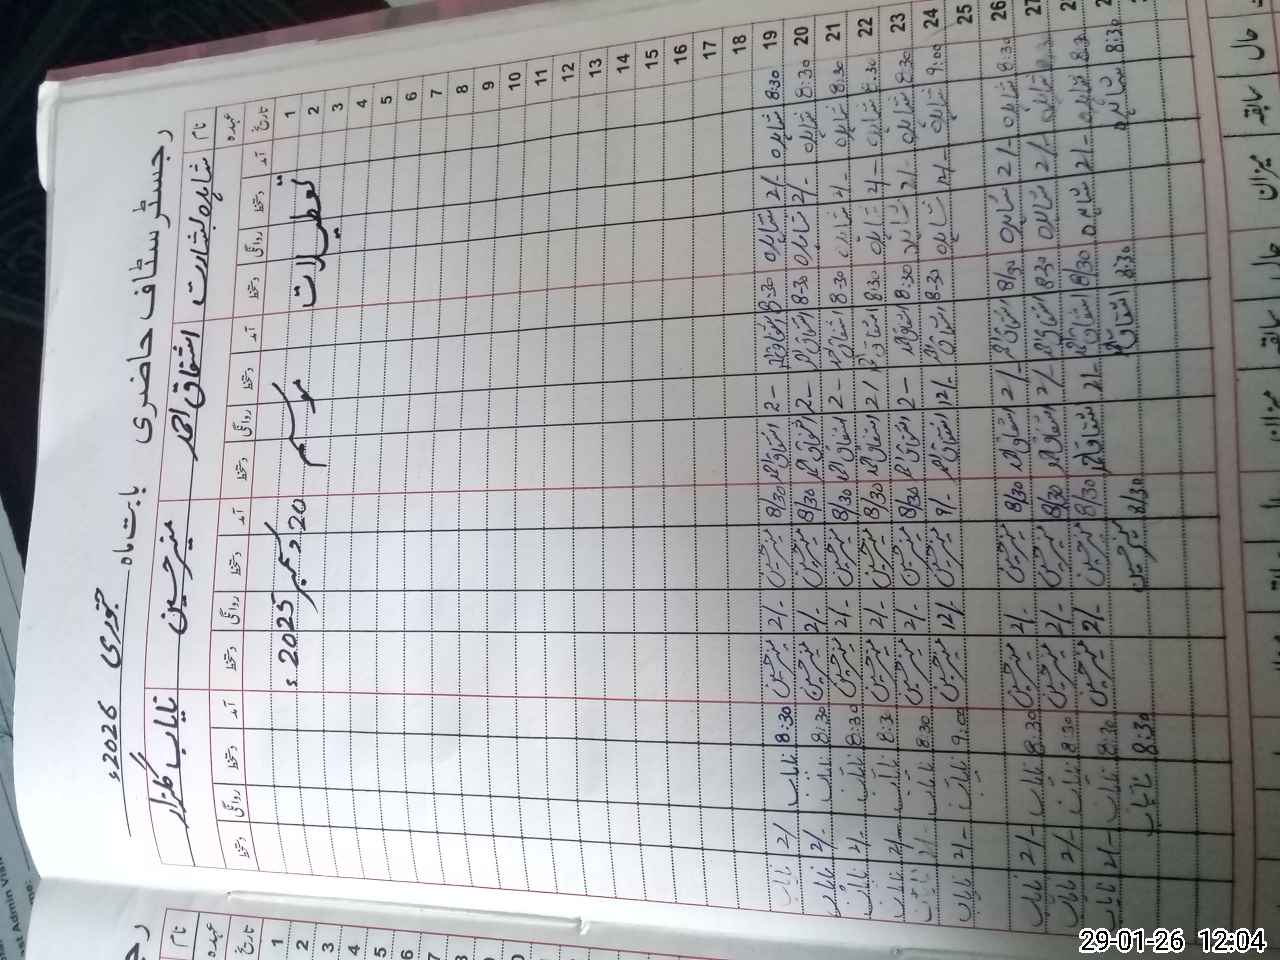 رجسٹر سٹاف حاضری بابت ماہ جنوری 2026ء
نام شاہدہ بشارت اشتقاق احمد منیر حسین نایاب گلزار
عہدہ
تاریخ آمد دستخط روانگی دستخط آمد دستخط روانگی دستخط آمد دستخط روانگی دستخط آمد دستخط روانگی دستخط
1
2
تعطیلات موسم 20 دسمبر 2025ء
3
4
5
6
7
8
9
10
11
12
13
14
15
16
17
18
19 8:30 شاہدہ 2/- شاہدہ 8:30 اشتقاق احمد 2- اشتقاق احمد 8/30 منیر حسین 2/- منیر حسین 8:30 نایاب 2/ نایاب
20 8:30 شاہدہ 2/- شاہدہ 8-30 اشتقاق احمد 2- اشتقاق احمد 8/30 منیر حسین 2/- منیر حسین 8:30 نایاب 2/- نایاب
21 8:30 شاہدہ 2/- شاہدہ 8:30 اشتقاق احمد 2- اشتقاق احمد 8/30 منیر حسین 2/- منیر حسین 8:30 نایاب 2/- نایاب
22 8:30 شاہدہ 2/- شاہدہ 8:30 اشتقاق احمد 2/ اشتقاق احمد 8/30 منیر حسین 2/- منیر حسین 8:30 نایاب 2/- نایاب
23 8:30 شاہدہ 2/- شاہدہ 8:30 اشتقاق احمد 2- اشتقاق احمد 8/30 منیر حسین 2/- منیر حسین 8:30 نایاب 2/- نایاب
24 9:00 شاہدہ 12/- شاہدہ 8:30 اشتقاق احمد 12/- اشتقاق احمد 9/- منیر حسین 12/- منیر حسین 9:00 نایاب 2/- نایاب
25
26 8:30 شاہدہ 2/- شاہدہ 8/30 اشتقاق احمد 2/- اشتقاق احمد 8/30 منیر حسین 2/- منیر حسین 8:30 نایاب 2/- نایاب
27 8:30 شاہدہ 2/- شاہدہ 8:30 اشتقاق احمد 2/- اشتقاق احمد 8/30 منیر حسین 2/- منیر حسین 8:30 نایاب 2/- نایاب
8:30 شاہدہ 2/- شاہدہ 8/30 اشتقاق احمد 2/- اشتقاق احمد 8/30 منیر حسین 2/- منیر حسین 8:30 نایاب 2/- نایاب
8:30 شاہدہ 8:30 اشتقاق احمد 8/30 منیر حسین 8:30 نایاب
حال سابقہ میزان حال سابقہ میزان
نام
عہدہ
تاریخ
1
2
3
4
5
6
7
8
9
st Admin Visit
29-01-26 12:04